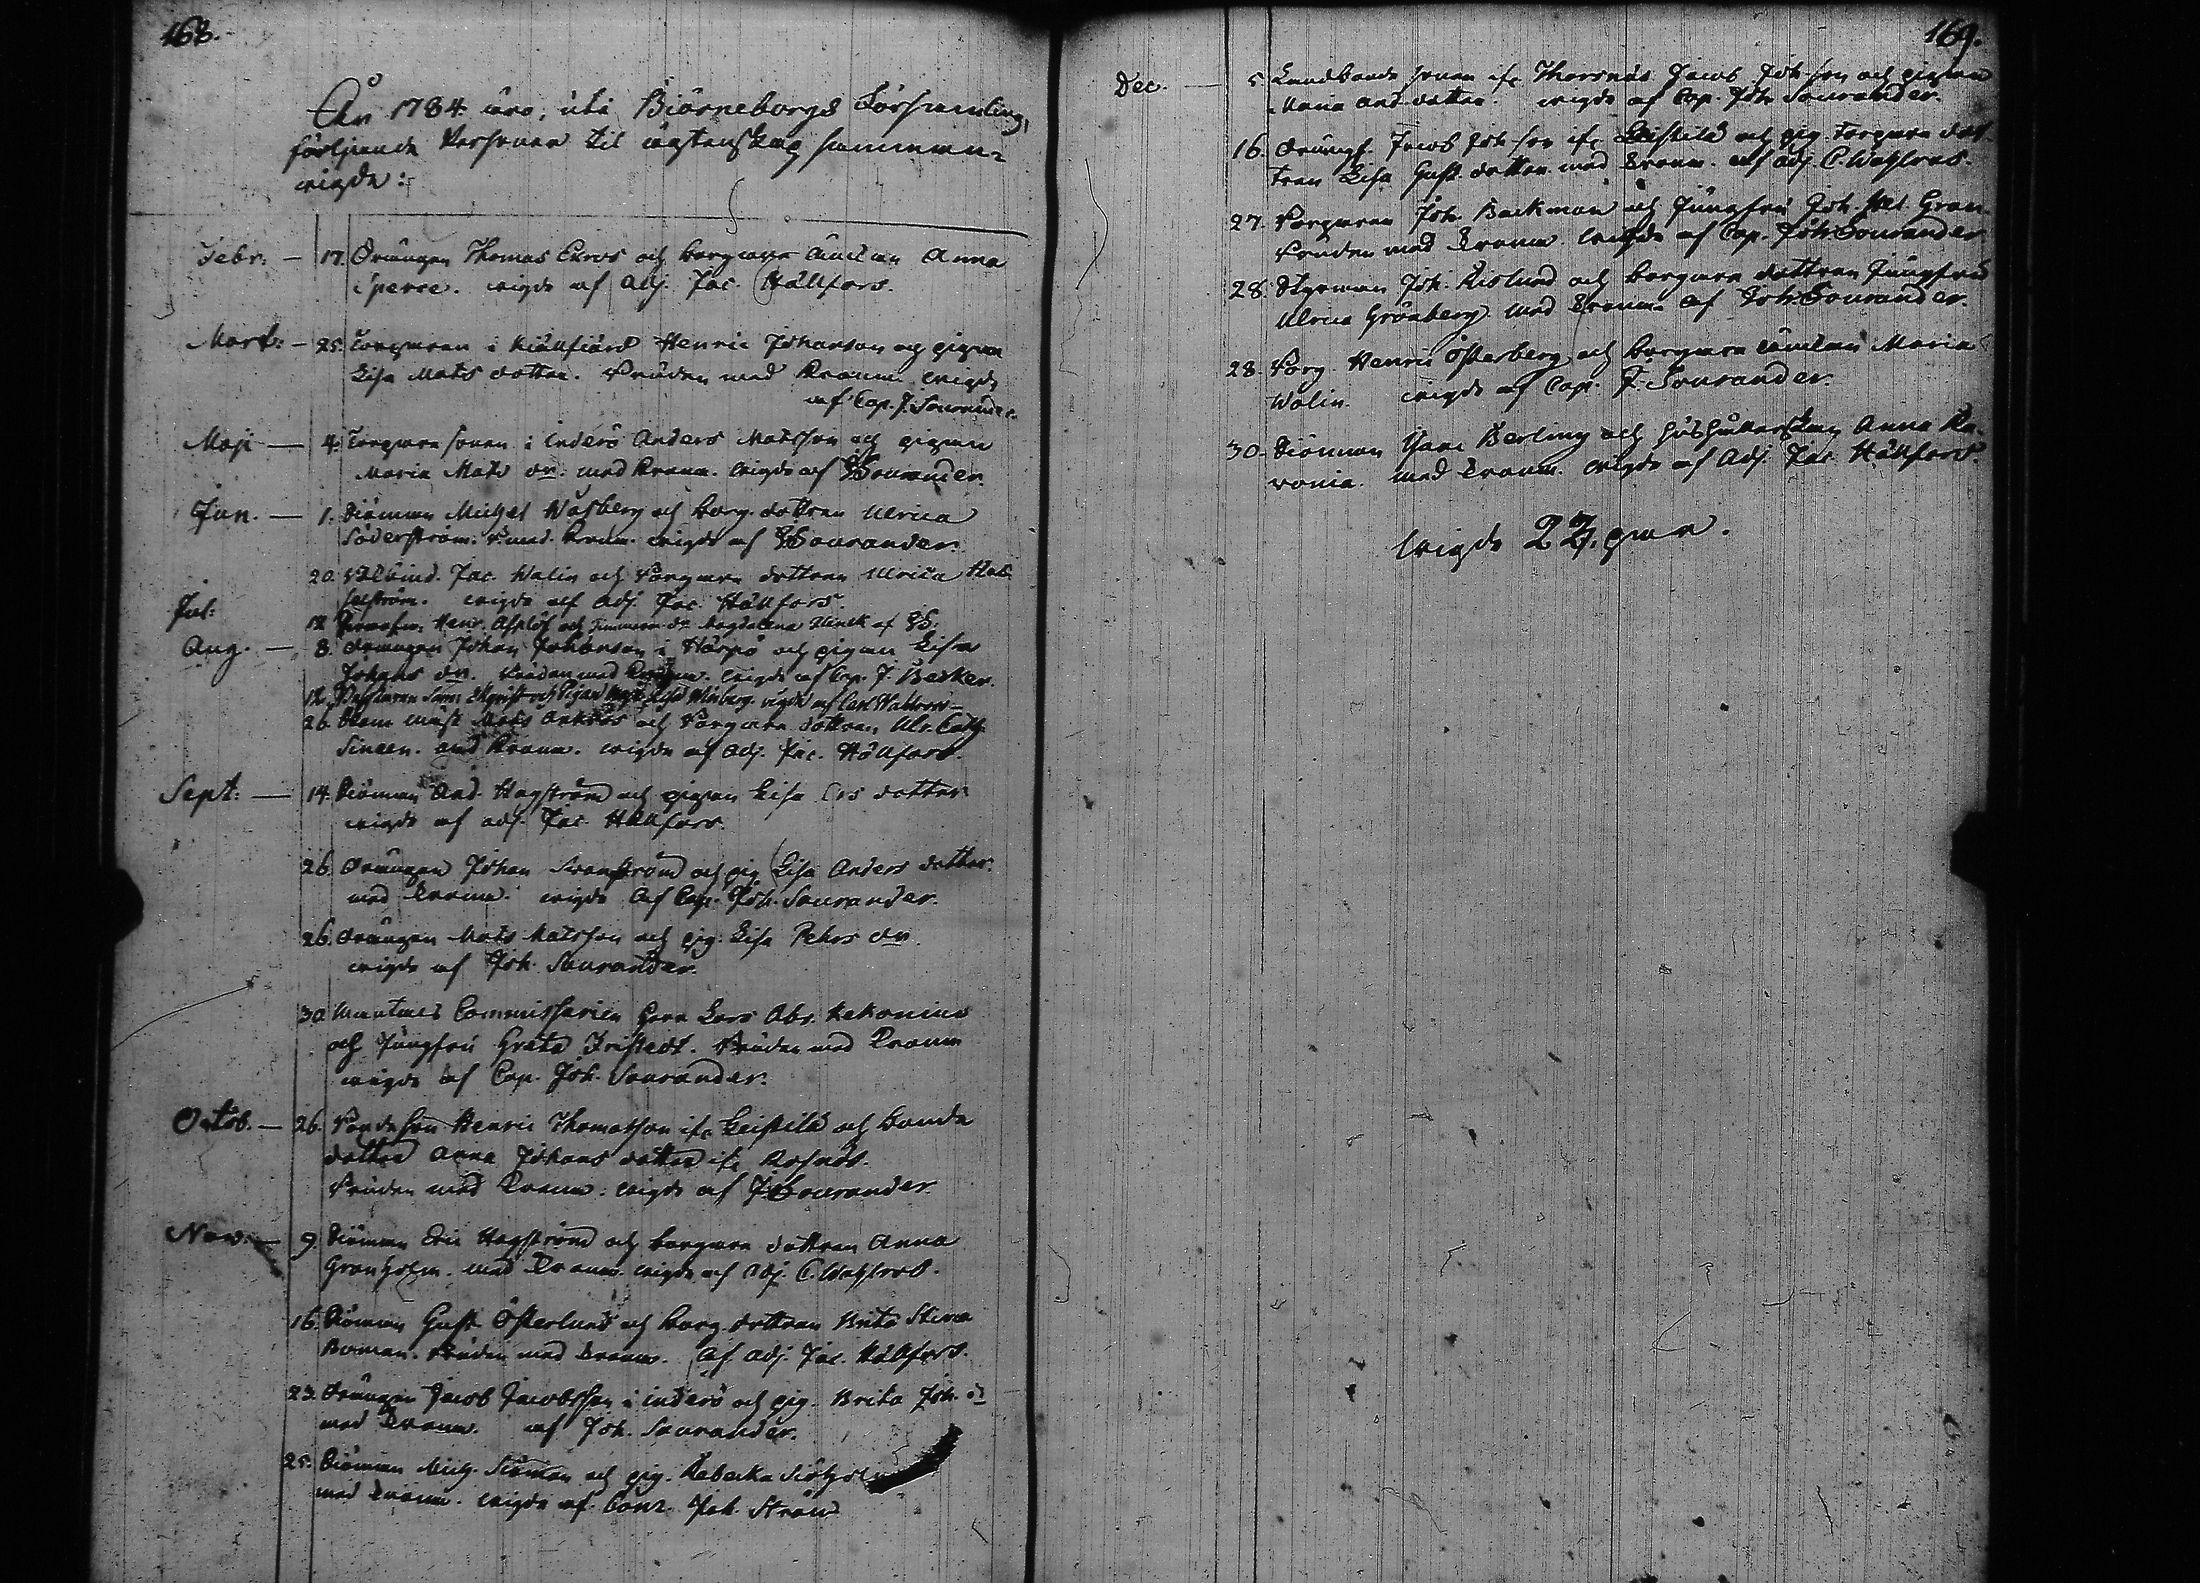 168.
År 1784 äro, uti Biörneborgs Församling,
följande Personer til ägtenskap samman-
vigde:
Febr. - 17. Drängen Thomas Ekros och borgare änckan Anna
Sperre. vigde af Adj. Jac. Hällfors.
Mart: - 25. Torparen i Kiällfiärd Henric Johansson och pigan
Lisa Mats dotter. Bruden med Kranm. vigde
af Cap. J. Sourander.
Maji - 4. Torpare sonen i Inderö Anders Matsson och pigan
Maria Mats dr. med Kranm. vigde af JSourander.
Jun. - 1. Siöman Michel Wasberg och borg. dottren Ulrica
Söderström. B. med. Kranm. vigde af JSourander.
20. Jac. Walin och Borgare dottren Ulrica
ström. vigde af Adj. Jac. Hällfors.
Jul: 12. Henr. Asplöf och Timmerm. dr. Magdalena af JS.
Aug. - 8. Drängen Johan Johansson i Härpö och pigan Lisa
Johans dr. Bruden med Kranm. vigde af Cap. J. Backer.
12. och Pigan Lisa vigde af Carl Wahlroos
26. Mats och Borgare dottren Ulr. Cath.
Sineen. med Kranm. vigde af Adj. Jac. Hällfors.
Sept: - 14. Siöman And. Hagström och pigan Lisa Ers dotter
vigde af adj. Jac. Hällfors.
26. Drängen Johan Svanström och pig. Lisa Anders dotter.
med Kranm. vigde af Cap. Joh. Sourander.
26. Drängen Mats Matsson och pig. Lisa Pehrs dr.
vigde af Joh. Sourander.
30. Mantals Commissarien Herr Lars Abr. Kekonius
och Jungfru Greta Fristedt. Bruden med Kranm
vigde af Cap. Joh. Sourander.
Octob. - 26. Bondeson Henric Thomasson ifr. Leistilä och bonde
dotter Anna Johans dotter ifr. Rosnäs.
Bruden med Kranm. vigde af JSourander.
Nov. - 9. Siöman Eric Hagström och borgare dottren Anna
Granholm. med Kranm. vigde af Adj. C. Wahlroos.
16. Siöman Gust. Österlund och borg. dottren Brita Stina
Boman. Bruden med Kranm. af Adj. Jac. Hällfors.
23. Drängen Jacob Jacobsson i Inderö och pig. Brita Joh. dr
med Kranm. af Joh. Sourander.
25. Siöman Mich. Siöman och pig. Rebecka Siöholm
med Kranm. vigde af Conr. Joh. Ström
169.
Dec. - 5. Landbonde sonen ifr. Thorsnäs Jacob Joh. son och pigan
Maria And. dotter. vigde af Cap. Joh. Sourander.
16. Jacob Joh. son ifr. Leistilä och pig. Torpare dot-
tren Lisa Gust. dotter med Kranm. af adj. C. Wahlroos.
27. Borgaren Joh. Backman och Jungfru Joh. Hel. Gran
Bruden med Kranm. vigde af Cap. Joh. Sourander
28. Styrman Joh. Roslund och borgare dottren Jungfru
Ulrica Grönberg. med Kranm. af Joh. Sourander.
28. Borg. Henric Österberg och borgare änckan Maria
Walin. vigde af Cap. J. Sourander.
30. Siöman Isaac Berling och hushållerskan Anna
med Kranm. vigde af Adj. Jac. Hällfors
vigde 22. par.